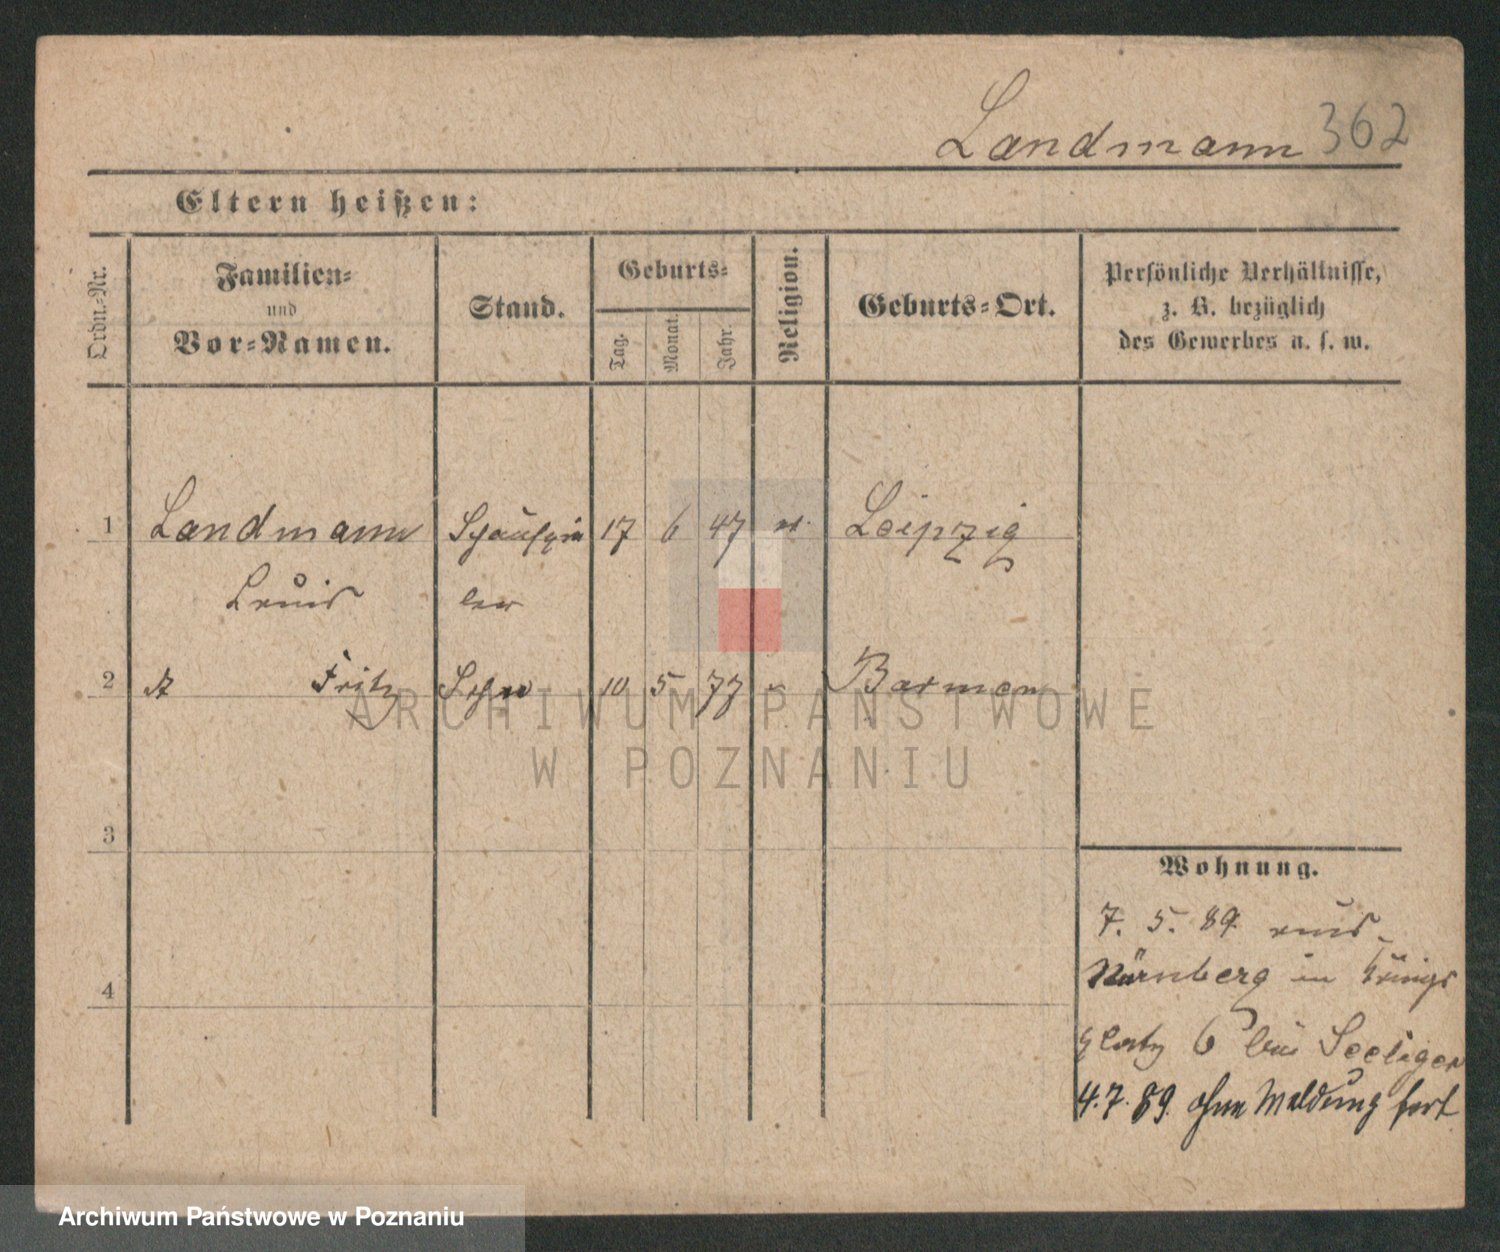 Landmann 362
Eltern heißen:
Ordn.-Nr.
Familien-
und
Vor-Namen.
Stand.
Geburts-
Tag.
Monat.
Jahr.
Religion.
Geburts-Ort.
Persönliche Verhältnisse,
z. B. bezüglich
des Gewerbes u. s. w.
1 Landmann Schauspie 17 6 47 Leipzig
Louis ler
2 Fritz Sohn 10 5 77 Barmen
3
4
Wohnung.
7. 5. 89 aus
Nürnberg in Königs
platz 6 bei Seeliger
4. 7. 89. ohne Meldung fort
ARCHIWUM PAŃSTWOWE
W POZNANIU
Archiwum Państwowe w Poznaniu